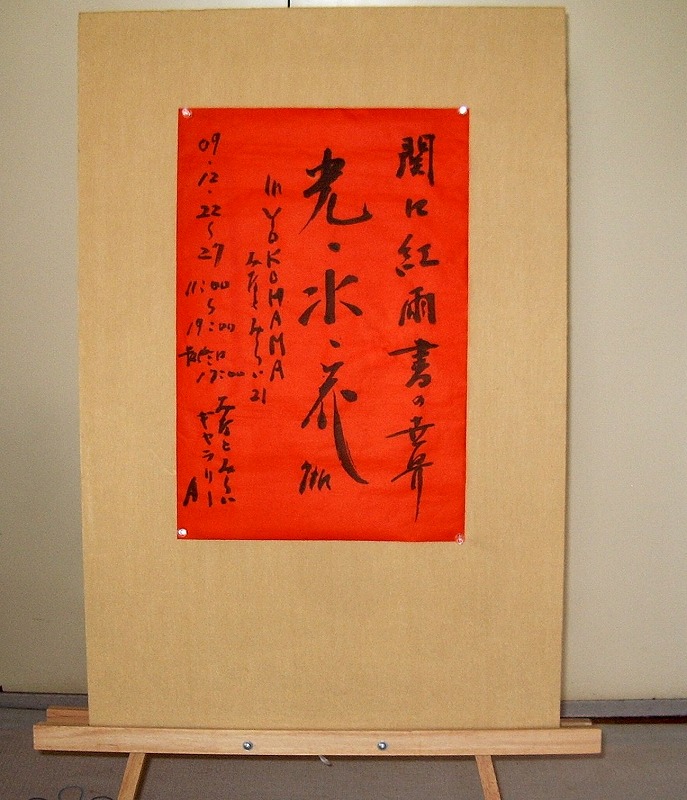 関口紅雨書の世界
光・水・花
7th
In YOKOHAMA
みなとみらい21
09.12.22〜27
11:00〜19:00
最終日17:00
みなとみらい
ギャラリーA